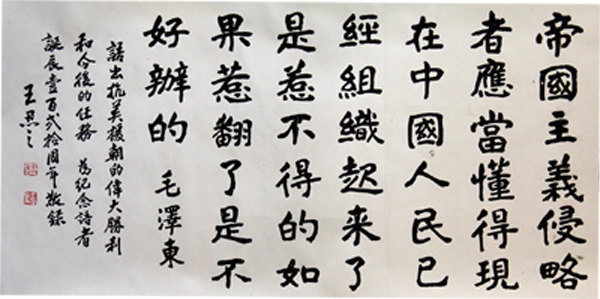 帝國主義侵略
者應當懂得現
在中國人民已
經組織起來了
是惹不得的如
果惹翻了是不
好辦的 毛澤東
語出抗美援朝的偉大勝利
和今後的任務 為紀念語者
誕辰壹百弍拾周年敬錄